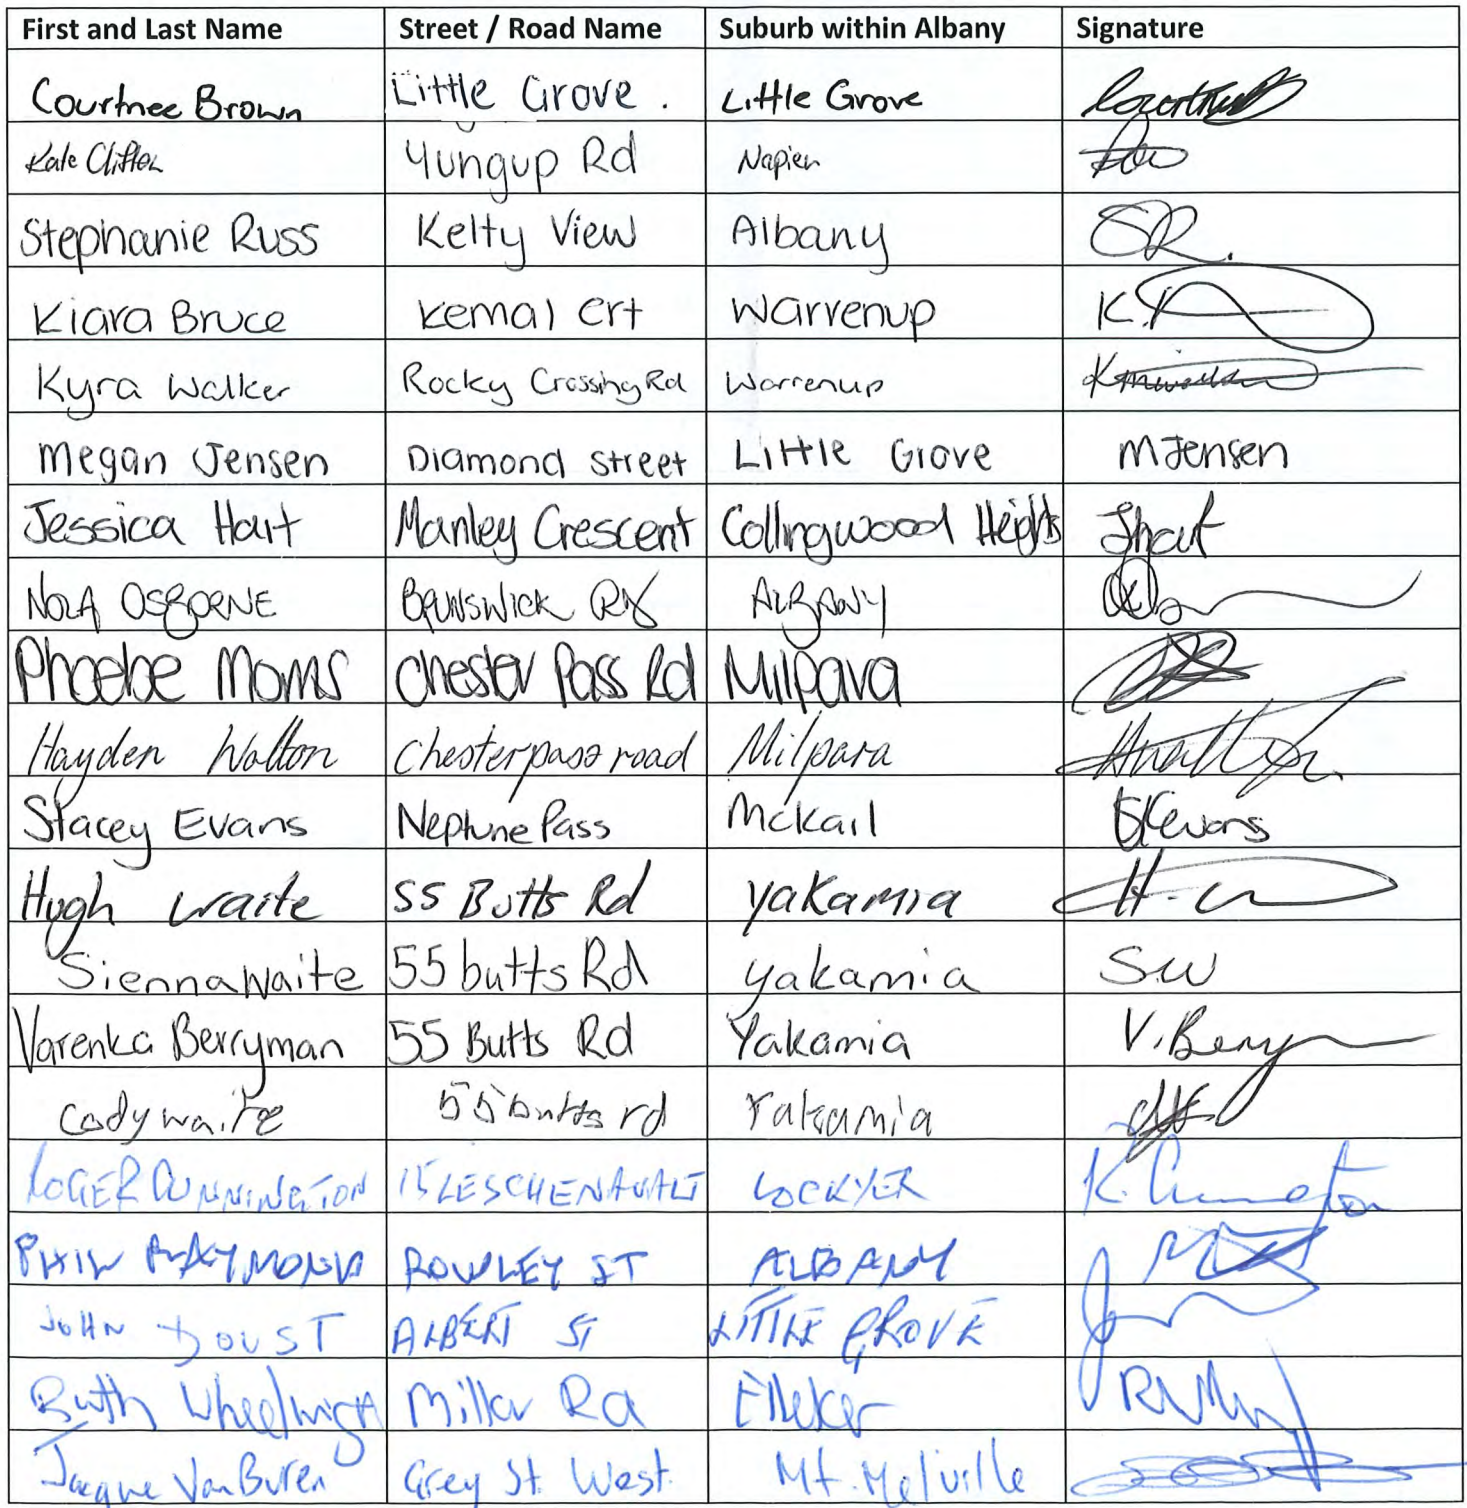 First and Last Name Street / Road Name Suburb within Albany Signature
Courtnee Brown Little Grove. Little Grove
Kate Clifton Yungup Rd Napier
Stephanie Russ Kelty View Albany SR.
Kiara Bruce Kemal Crt Warrenup
Kyra Walker Rocky Crossing Rd Warrenup
Megan Jensen Diamond Street Little Grove M Jensen
Jessica Hart Manley Crescent Collingwood Heights JHart
NOLA OSBORNE BRUNSWICK RD ALBANY
Phoebe Morris Chester Pass Rd Milpara
Hayden Walton Chesterpass road Milpara
Stacey Evans Neptune Pass McKail Evans
Hugh Waite 55 Butts Rd Yakamia
Sienna Waite 55 butts Rd yakamia S.W
Varenka Berryman 55 Butts Rd Yakamia V. Berry
Cody waite 55 butts rd Yakamia
ROGER CUNNINGTON 15 LESCHENAULT LOCKYER
PHIL RAYMOND ROWLEY ST ALBANY
JOHN DOUST ALBERT ST LITTLE GROVE
Ruth Wheelwright Millar Rd Elleker
Jacque Van Buren Grey St. West. Mt. Melville